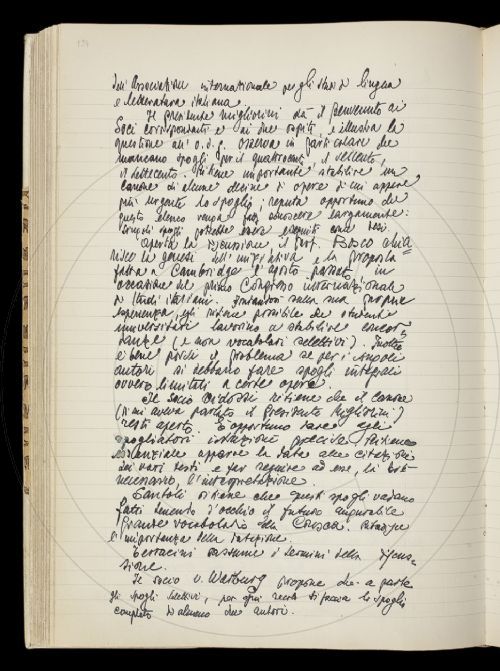 124
dell'Associazione internazionale per gli studi di lingua
e letteratura italiana.
Il presidente Migliorini dà il benvenuto ai
Soci corrispondenti e ai due ospiti, e illustra la
questione all'o.d.g. Osserva in particolare che
mancano spogli per il quattrocento, il seicento,
il settecento. Ritiene importante stabilire un
canone di alcune decine di opere di cui appare
più urgente lo spoglio; reputa opportuno che
questo elenco venga fatto conoscere largamente:
singoli spogli potrebbero essere eseguiti come tesi.
Aperta la discussione, il prof. Bosco chia=
risce la genesi dell'iniziativa e la proposta
fatta a Cambridge l'agosto passato, in
occasione del primo Congresso internazionale
di studi italiani. Fondandosi sulla sua propria
esperienza, egli ritiene possibile che studenti
universitari lavorino a stabilire concor=
danze (e non vocabolari selettivi). Inoltre
è bene porsi il problema se per i singoli
autori si debbano fare spogli integrali
ovvero limitati a certe opere.
Il Socio Chiossi ritiene che il canone
(di cui aveva parlato il Presidente Migliorini)
resti aperto. È opportuno dare agli
spogliatori istruzioni precise. Ritiene
essenziale apporre la data alle citazioni
dei vari testi e far seguire ad esse, là ov'è
necessario, l'interpretazione.
Santoli ritiene che questi spogli vadano
fatti tenendo d'occhio il futuro augurabile
Grande vocabolario della Crusca.
l'importanza della datazione.
Terracini riassume i termini della discus=
sione.
Il socio v. Wartburg propone che a parte
gli spogli selettivi, per ogni secolo si faccia lo spoglio
completo di almeno due autori.